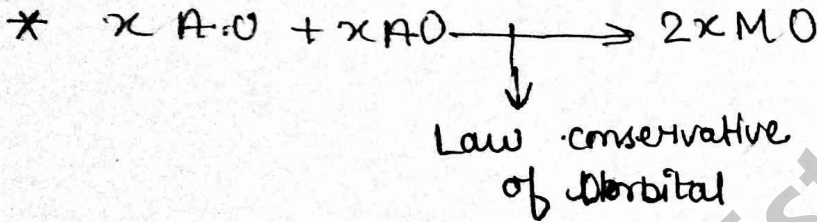 * x A.O + xAO → 2x MO
Law conservative
of orbital